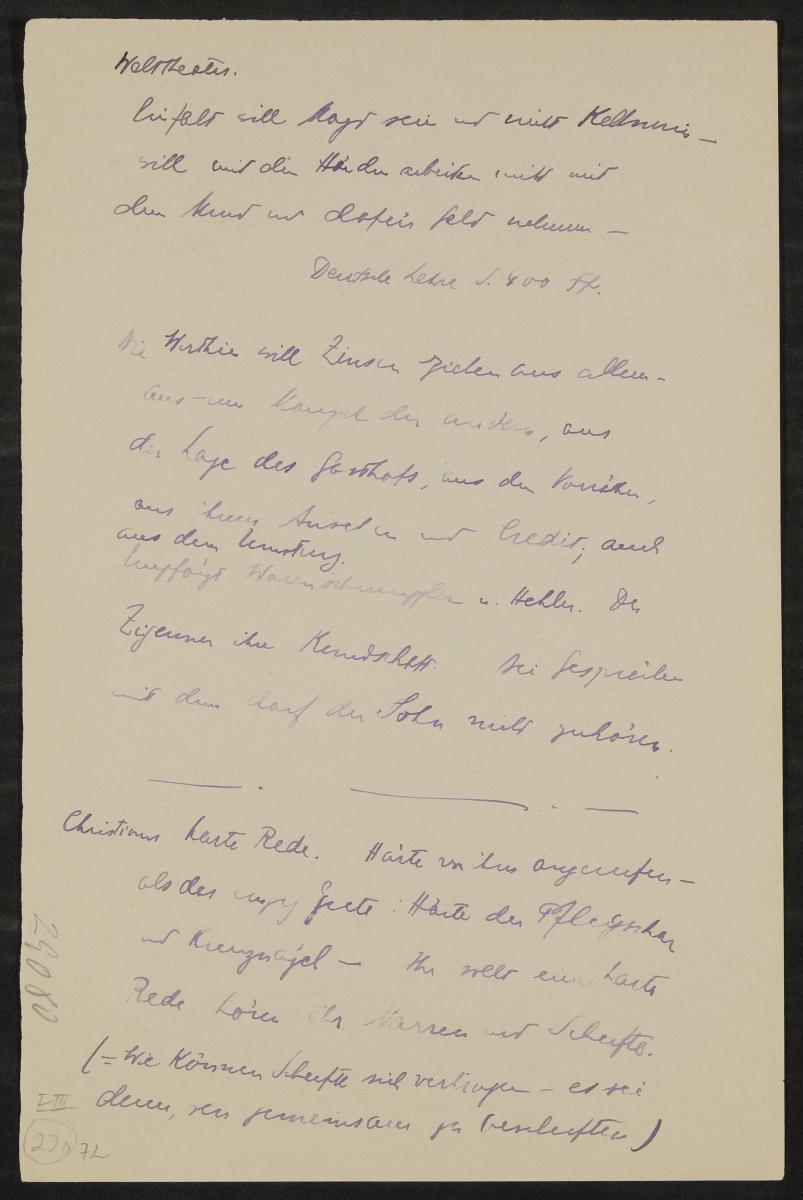 Welttheater.
Einfalt will Magd sein und nicht Kellnerin –
will mit den Händen arbeiten nicht mit
dem Mund und dafür Geld nehmen –
Deutsche Lehre S. 400 ff.
Die Wirthin will Zinsen ziehen aus allem –
aus dem Mangel der andern, aus
der Lage des Gasthofs, aus den Vorräthen,
aus ihrem Ansehen und Credit; auch
aus dem Umsturz.
Empfängt Waren u. Hehler. Der
Zigeuner ihre Kundschaft. Die Gespräche
mit dem darf der Sohn nicht zuhören.
Christians harte Rede. Härte von ihm angerufen –
als das Gute: Härte der Pflugschar
und Kreuznägel – Ihr sollt eine harte
Rede hören ihr Narren und Schufte.
(= Wie können Schufte sich vertragen – es sei
denn, gemeinsam zu)
2903D
E III
220 72